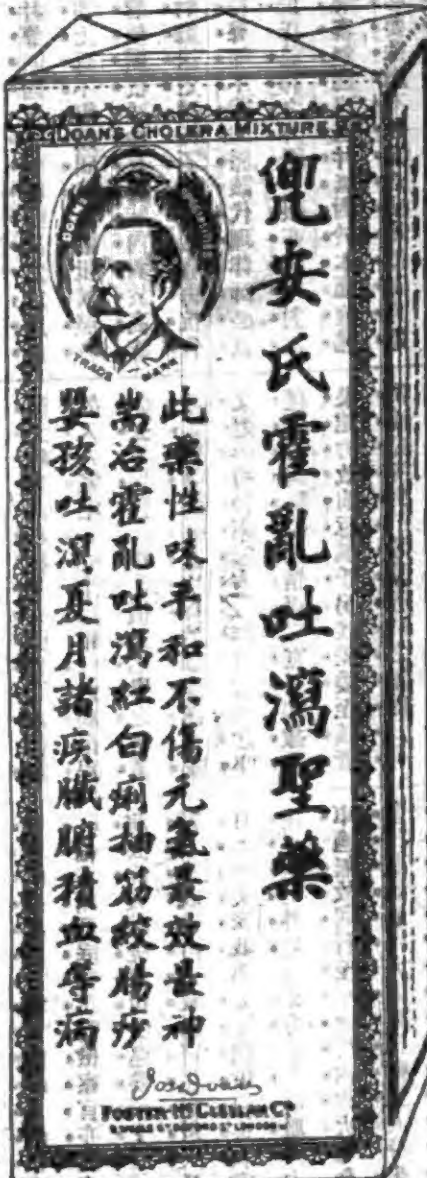 DOAN'S CHOLERA MIXTURE
DOANS
TRADE MARK
兜安氏霍亂吐瀉聖藥
此藥性味平和不傷元氣最效最神
耑治霍亂吐瀉紅白痢抽筋絞腸痧
嬰孩吐瀉夏月諸疾臟腑積血等病
FOSTER-McCLELLAN Co